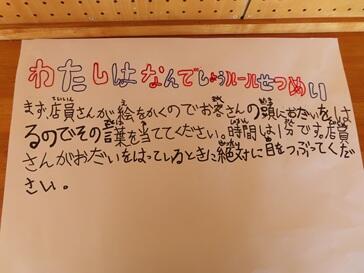 わたしはなんでしょうルールせつめい
まず店員さんが絵をかくのでお客さんの頭におだいをは
るのでその言葉を当ててください。時間は1分です。店員
さんがおだいをはっているときに絶対に目をつぶってくだ
さい。